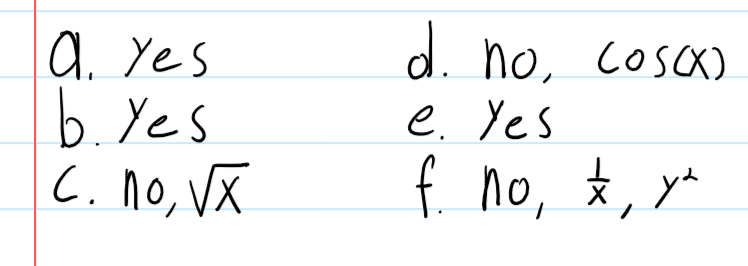 a. yes
b. Yes
c. no, √x
d. no, cos(x)
e. Yes
f. no, 1/x, y²